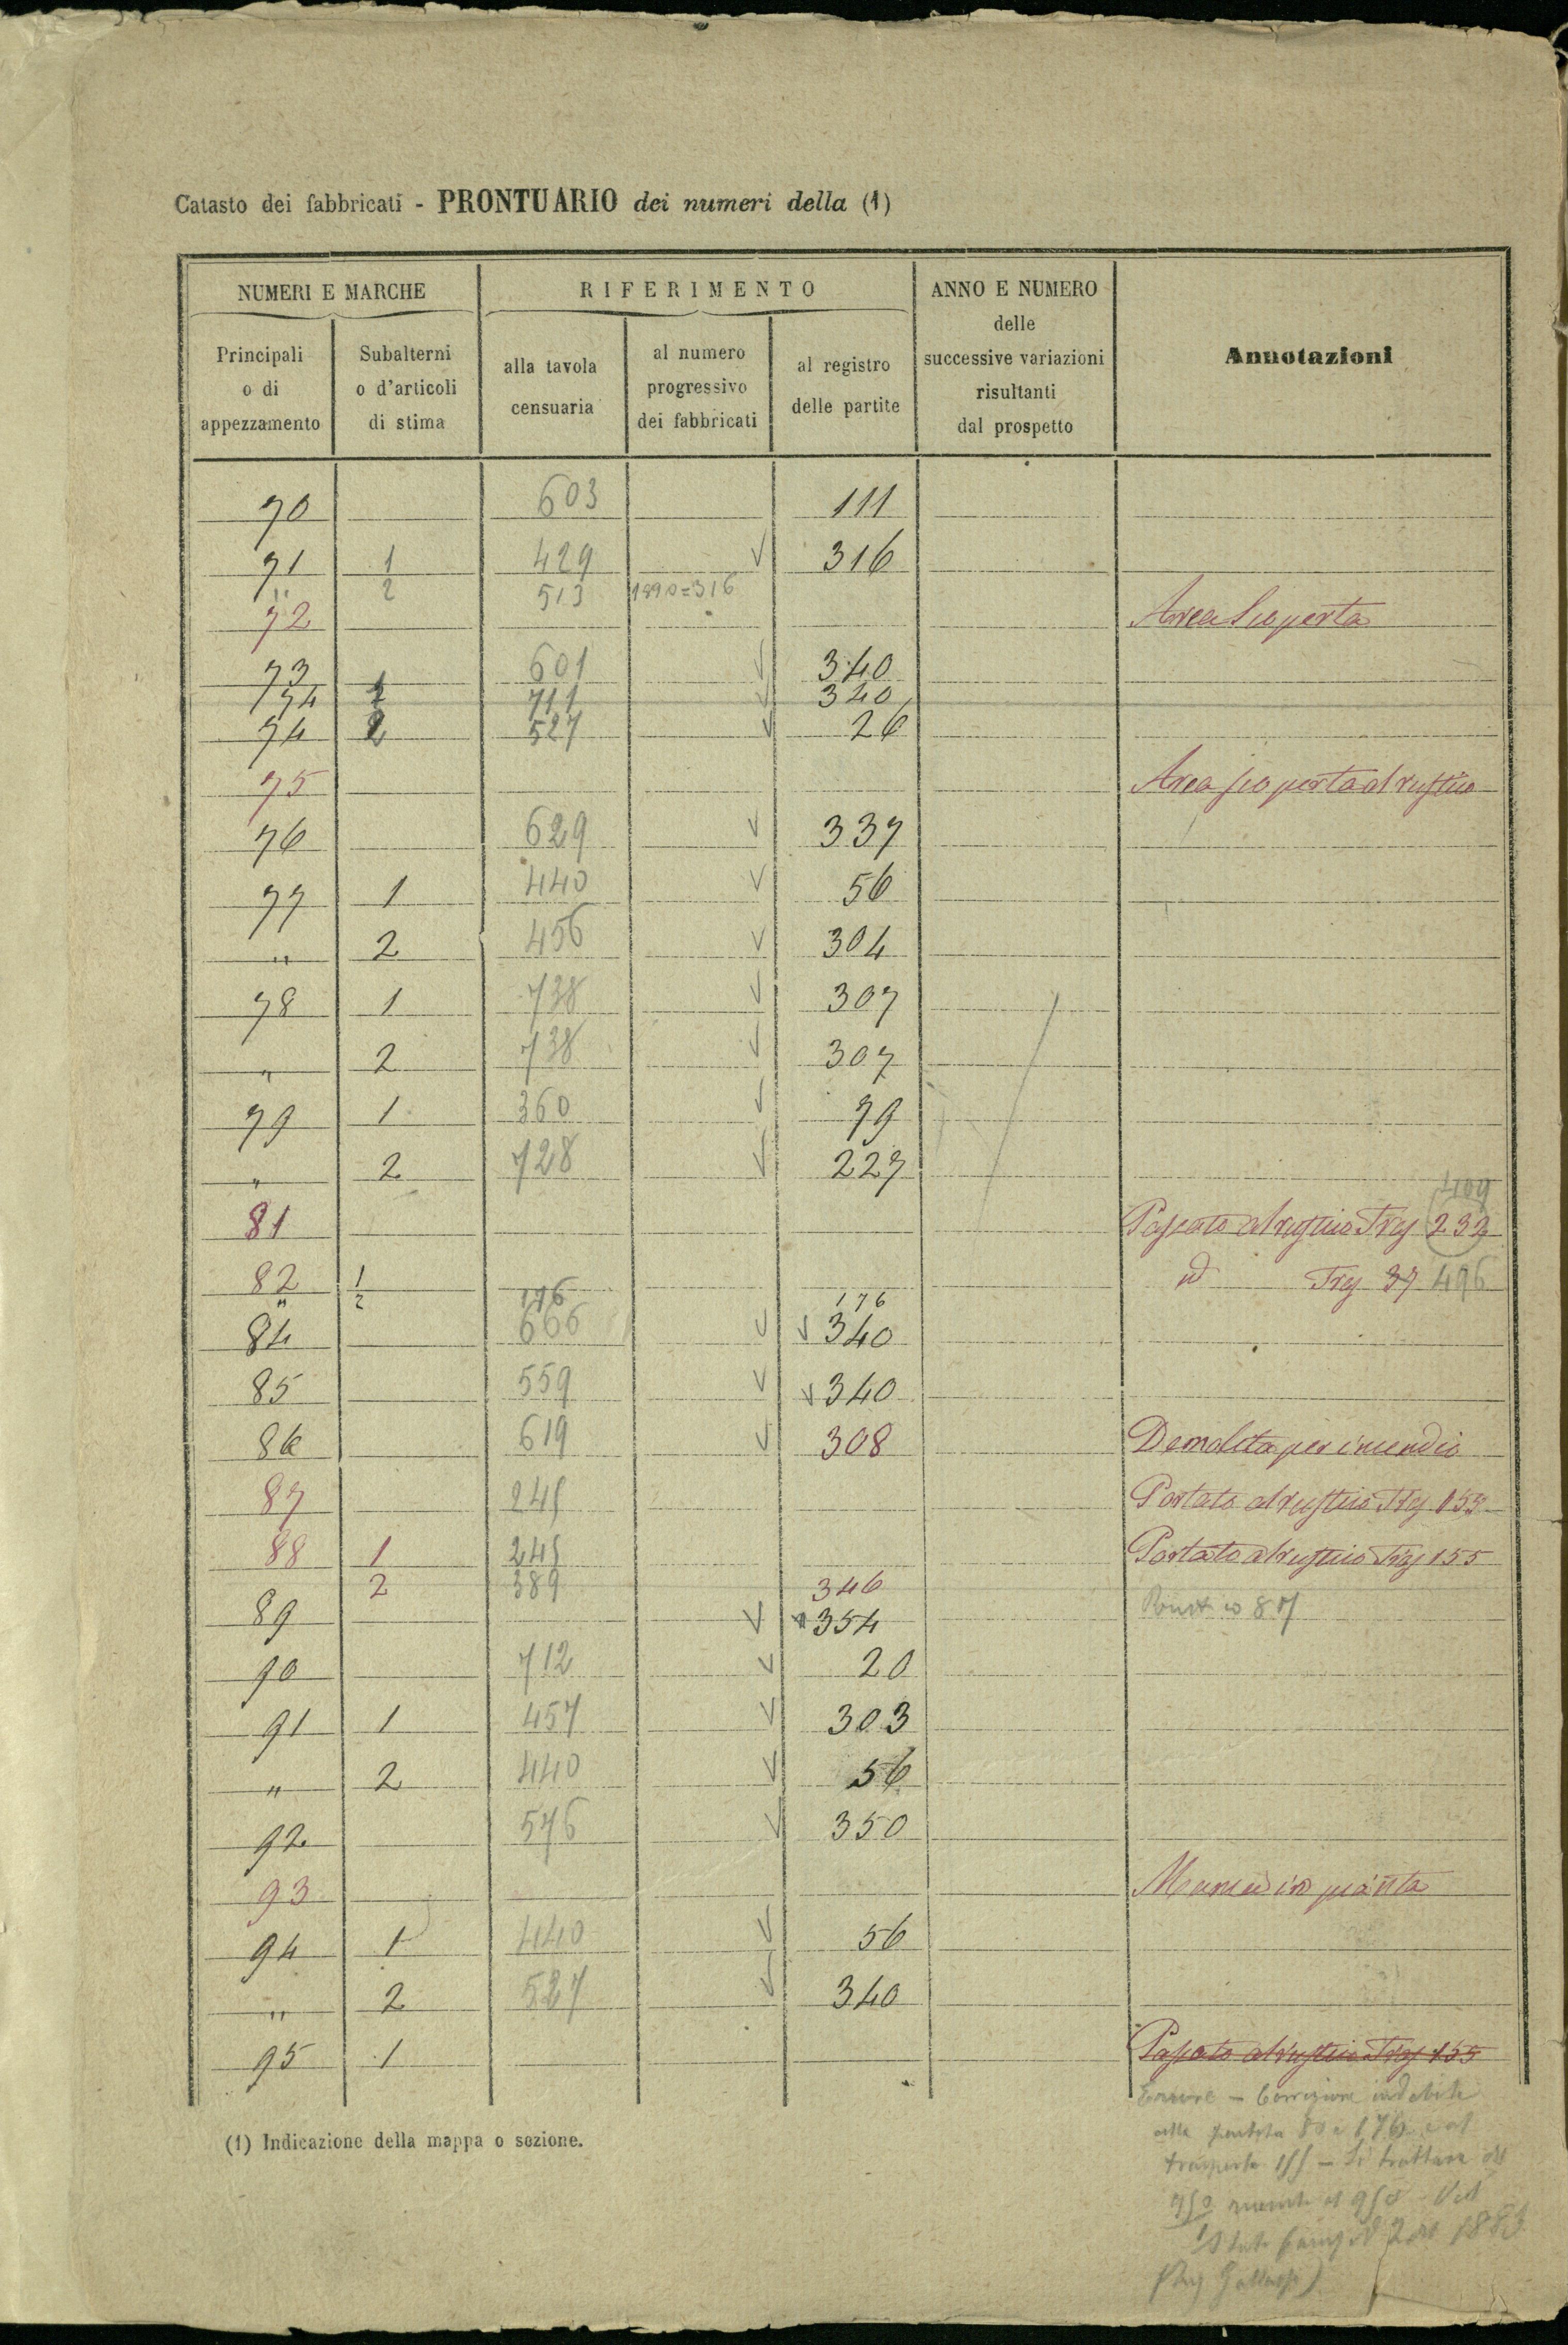 Catasto dei fabbricati - PRONTUARIO dei numeri della (1)
NUMERI E MARCHE
RIFERIMENTO
ANNO E NUMERO delle successive variazioni risultanti dal prospetto
Annotazioni
Principali o di appezzamento
Subalterni o d'articoli di stima
alla tavola censuaria
al numero progressivo dei fabbricati
al registro delle partite
70 603 111
71 1 429 ✓ 316
" 2 513 1890=316
72 Area Scoperta
73 601 ✓ 340
74 1 711 ✓ 340
74 2 527 ✓ 26
75 Area scoperta al rustico
76 629 ✓ 337
77 1 440 ✓ 56
" 2 456 ✓ 304
78 1 738 ✓ 307
" 2 738 ✓ 307
79 1 360 ✓ 79
" 2 728 ✓ 227
409
81 Passato al rustico Trej 232
82 1 id Trej 37 496
" 2 176 176
84 666 ✓ ✓ 340
85 559 ✓ ✓ 340
86 619 ✓ 308 Demolita per incendio
87 245 Portato al rustico Trej 155
88 1 245 Portato al rustico Trej 155
2 389 346
89 ✓ 354 87
90 712 ✓ 20
91 1 457 ✓ 303
" 2 440 ✓ 56
92 576 ✓ 350
93 Manca in pianta
94 1 440 ✓ 56
" 2 527 ✓ 340
95 1 Passato al rustico Trej 155
Errore - Correzione indebita
alla partita 176
trasporto 155 - Si trattava
1883
(1) Indicazione della mappa o sezione.